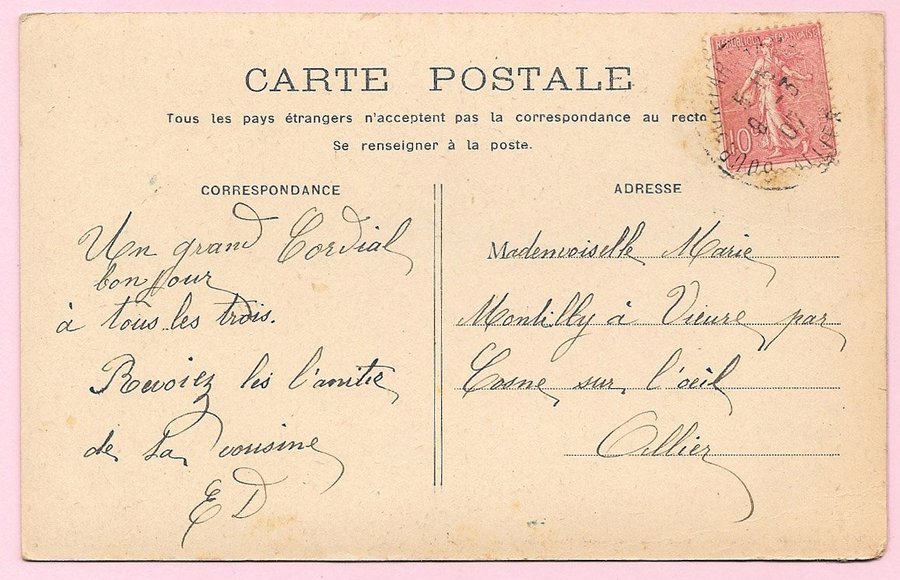 CARTE POSTALE
Tous les pays étrangers n'acceptent pas la correspondance au recto
Se renseigner à la poste.
CORRESPONDANCE
Un grand Cordial
bonjour
à tous les trois.
Recevez les l'amitié
de la cousine
ED
ADRESSE
Mademoiselle Marie
Montilly à Vieure par
Cosne sur l'oeil
Allier
REPUBLIQUE FRANÇAISE
10